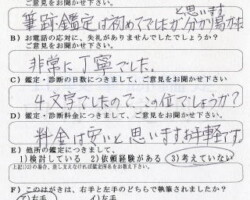 ご意見をお聞かせ下さい。
筆跡鑑定は初めてでしたが分かり易かった
と思います
B）お電話の応対に、失礼がありませんでしたでしょうか？
ご意見をお聞かせ下さい。
非常に丁寧でした。
C）鑑定・診断の日数につきまして、ご意見をお聞かせ下さい。
4文字でしたので、この位でしょうか？
D）鑑定・診断の料金につきまして、ご意見をお聞かせ下さい。
料金は安いと思います お手軽です。
E）他所の鑑定につきまして、
1)検討している 2)依頼経験がある 3)考えていない
F）このはがきは、右手と左手のどちらで執筆されましたか？
ア)右手 イ)左手